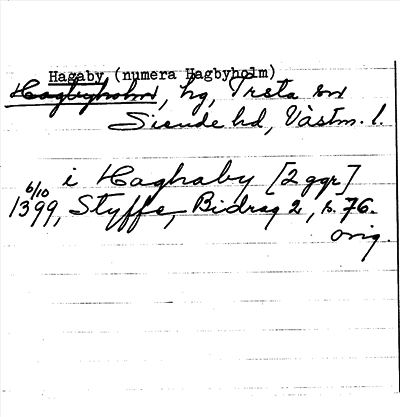 Hagaby (numera Hagbyholm)
Hagbyholm, hg, Irsta sn
Siende hd, Västm. l.
i Haghaby [2 ggr]
6/10
1399, Styffe, Bidrag 2, s. 76.
orig.